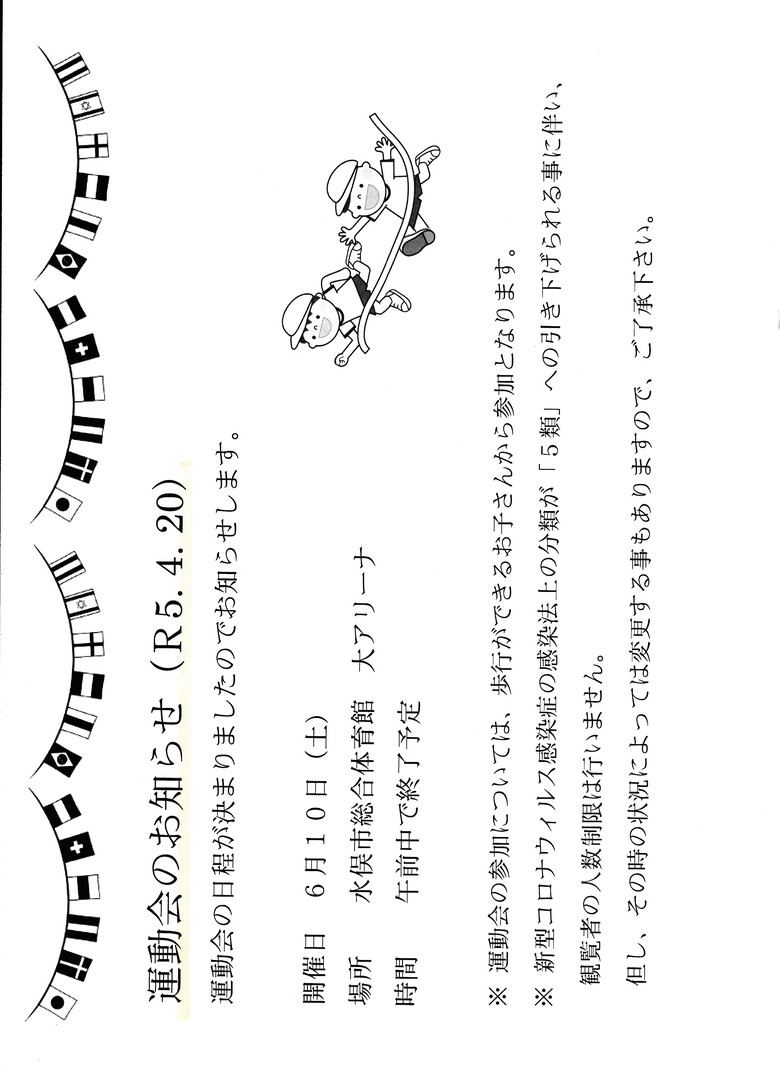 運動会のお知らせ（Ｒ５.４.２０）
運動会の日程が決まりましたのでお知らせします。
開催日　６月１０日（土）
場所　水俣市総合体育館　大アリーナ
時間　午前中で終了予定
※ 運動会の参加については、歩行ができるお子さんから参加となります。
※ 新型コロナウィルス感染症の感染法上の分類が「５類」への引き下げられる事に伴い、
観覧者の人数制限は行いません。
但し、その時の状況によっては変更する事もありますので、ご了承下さい。